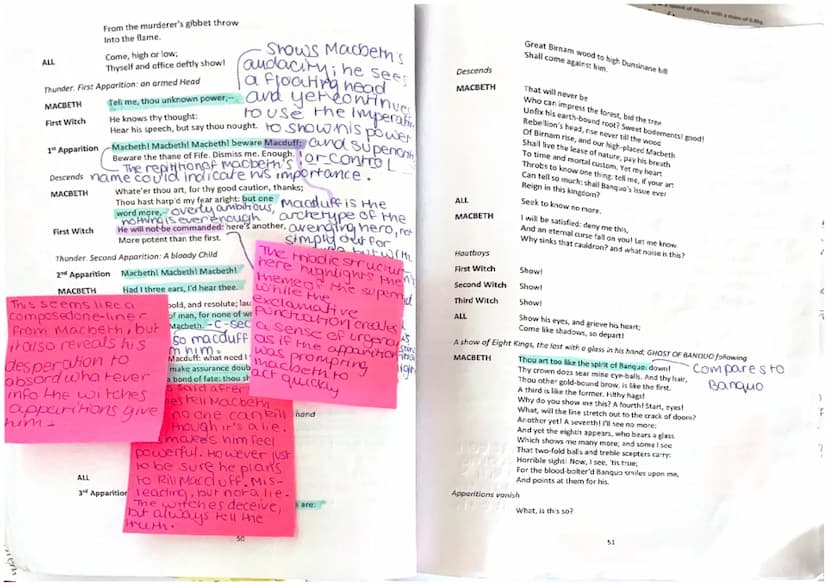 From the murderer's gibbet throw
Into the flame.
ALL Come, high or low;
Thyself and office deftly show!
Thunder. First Apparition: an armed Head
MACBETH Tell me, thou unknown power,–
First Witch He knows thy thought:
Hear his speech, but say thou nought.
1st Apparition Macbeth! Macbeth! Macbeth! beware Macduff;
Beware the thane of Fife. Dismiss me. Enough.
Descends
MACBETH Whate'er thou art, for thy good caution, thanks;
Thou hast harp'd my fear aright: but one
word more,–
First Witch He will not be commanded: here's another,
More potent than the first.
Thunder. Second Apparition: A bloody Child
2nd Apparition Macbeth! Macbeth! Macbeth!
MACBETH Had I three ears, I'd hear thee.
bold, and resolute; lau
of man, for none of w
Macbeth.
Macduff: what need I
make assurance doub
a bond of fate; thou sh
hand
ALL
3rd Apparition
s are:
50
Shows Macbeth's
audacity; he sees
a floating head
and yet continues
to use the imperative
to show his power
and superiority
or control
The repitition of macbeth's
name could indicate his importance.
overly ambitious,
nothing is ever enough
Macduff is the
archetype of the
avenging hero, not
simply out for
but with
-C-sec
so macduff
him.
The triadic structure
here highlights the
theme of the supernat
while the
exclamative
punctuation creates
a sense of urgency
as if the apparition
was prompting
macbeth to
act quickly
This seems like a
composed one-liner
from Macbeth, but
it also reveals his
desperation to
absord whatever
info the witches
apparitions give
him.
tell Macbeth
no one can kill
though it's a lie.
makes him feel
powerful. However just
to be sure he plans
to kill Macduff. Mis-
leading, but not a lie.
The witches deceive,
but always tell the
truth.
Great Birnam wood to high Dunsinane hill
Shall come against him.
Descends
MACBETH That will never be
Who can impress the forest, bid the tree
Unfix his earth-bound root? Sweet bodements! good!
Rebellion's head, rise never till the wood
Of Birnam rise, and our high-placed Macbeth
Shall live the lease of nature, pay his breath
To time and mortal custom. Yet my heart
Throbs to know one thing: tell me, if your art
Can tell so much: shall Banquo's issue ever
Reign in this kingdom?
ALL Seek to know no more.
MACBETH I will be satisfied: deny me this,
And an eternal curse fall on you! Let me know
Why sinks that cauldron? and what noise is this?
Hautboys
First Witch Show!
Second Witch Show!
Third Witch Show!
ALL Show his eyes, and grieve his heart;
Come like shadows, so depart!
A show of Eight Kings, the last with a glass in his hand; GHOST OF BANQUO following
MACBETH Thou art too like the spirit of Banquo: down!
Thy crown does sear mine eye-balls. And thy hair,
Thou other gold-bound brow, is like the first.
A third is like the former. Filthy hags!
Why do you show me this? A fourth! Start, eyes!
What, will the line stretch out to the crack of doom?
Another yet! A seventh! I'll see no more:
And yet the eighth appears, who bears a glass
Which shows me many more; and some I see
That two-fold balls and treble scepters carry:
Horrible sight! Now, I see, 'tis true;
For the blood-bolter'd Banquo smiles upon me,
And points at them for his.
Apparitions vanish
What, is this so?
51
Compares to
Banquo